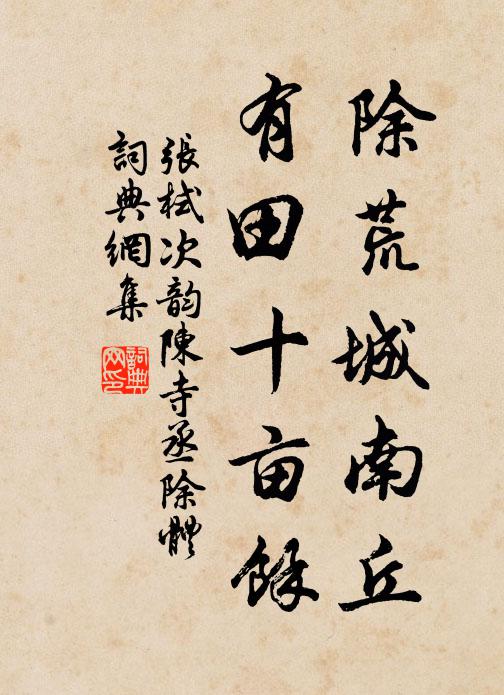 除荒城南丘
有田十亩餘
張栻次韵陳寺丞除體
詞典網集
詞典網印